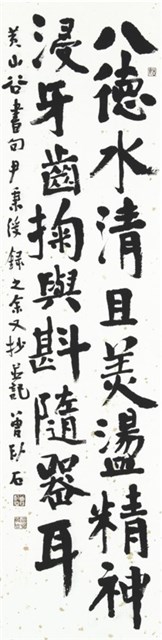 八德水清且美盪精神
浸牙齒掬與斟隨器耳
黃山谷書句尹秉綬錄之余又抄並記 曾臥石